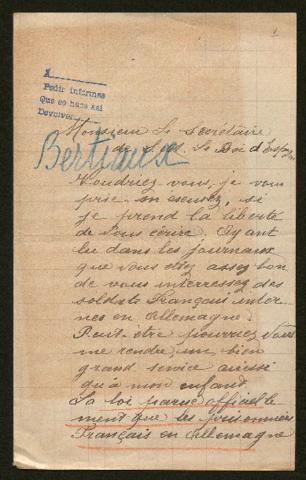 1
A
Pedir informes
Que se hace asi
Devolver
Monsieur Le Secrétaire
de S. M. Le Roi d'Espagne
Bertiaux
Voudriez-vous, je vous
prie m'excuser, si
je prend la liberté
de Vous écrire. Ayant
lu dans les journaux
que Vous etiez assez bon
de vous interressez des
soldats Français inter-
nés en Allemagne.
Peut-être pourriez Vous
me rendre un bien
grand service aussi
qu'à mon enfant
La loi parue officielle-
ment que les prisonniers
Français en Allemagne